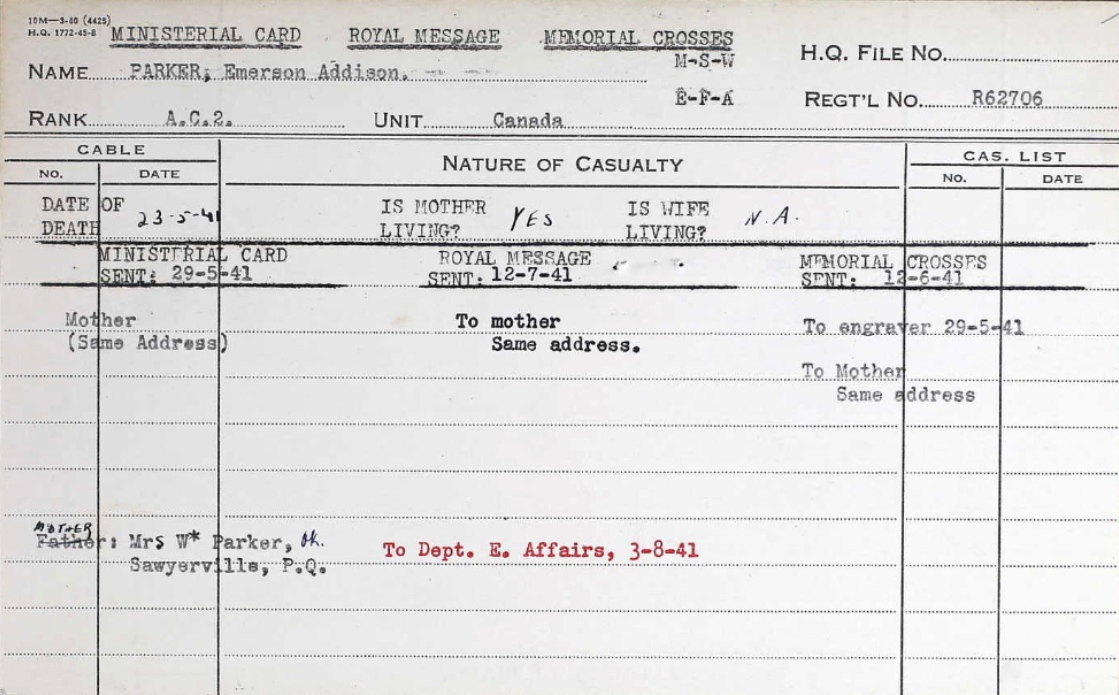 10M—3-40 (4425)
H.Q. 1772-45-8
MINISTERIAL CARD ROYAL MESSAGE MEMORIAL CROSSES
H.Q. FILE NO.
NAME PARKER, Emerson Addison. M-S-W
E-F-A
REGT'L NO. R62706
RANK A.C.2. UNIT Canada
CABLE NATURE OF CASUALTY CAS. LIST
NO. DATE NO. DATE
DATE OF DEATH 23-5-41 IS MOTHER LIVING? YES IS WIFE LIVING? N.A.
MINISTERIAL CARD ROYAL MESSAGE MEMORIAL CROSSES
SENT: 29-5-41 SENT: 12-7-41 SENT: 12-6-41
Mother To mother To engraver 29-5-41
(Same Address) Same address.
To Mother
Same address
MOTHER
Father: Mrs W* Parker, ok. To Dept. E. Affairs, 3-8-41
Sawyerville, P.Q.